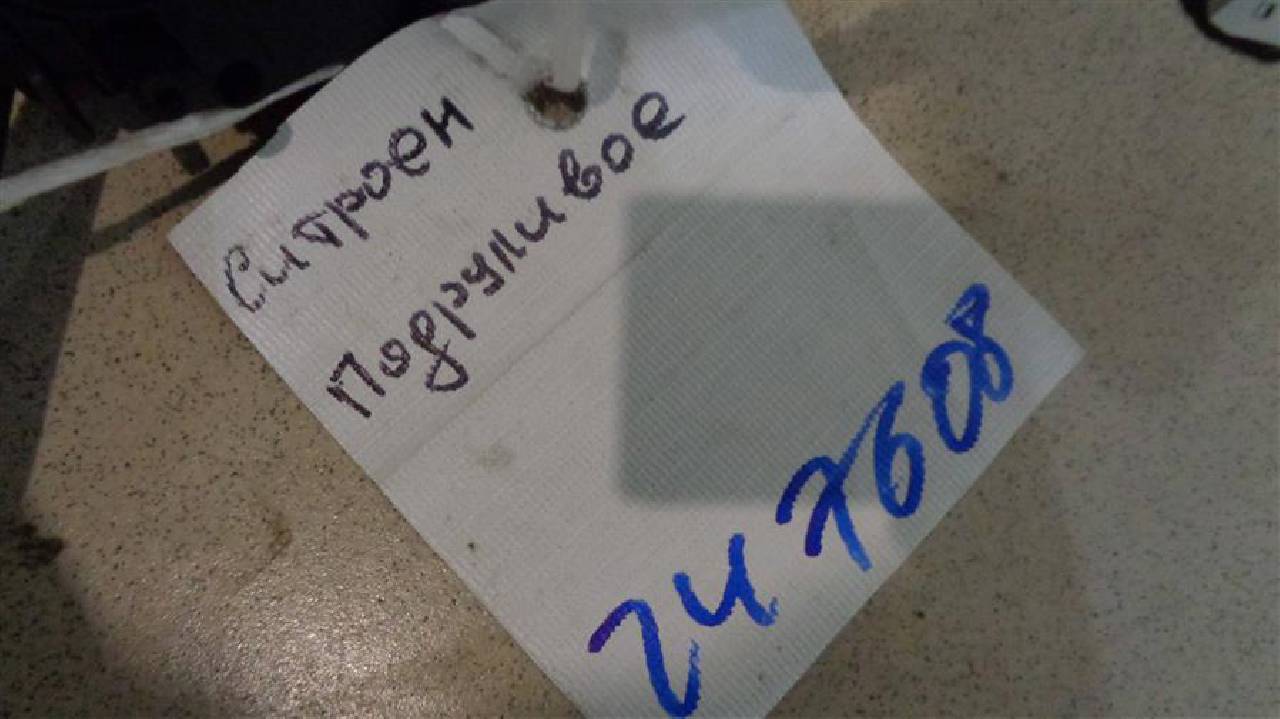 Ситроен
Подруливое
247608